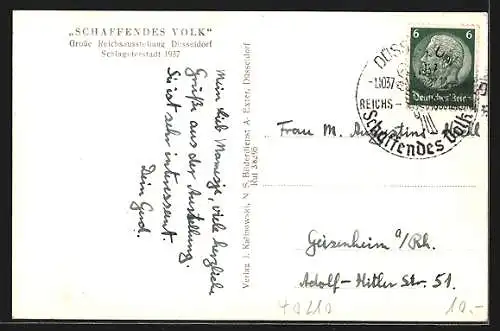 „SCHAFFENDES VOLK“
Große Reichsausstellung Düsseldorf
Schlageterstadt 1937
Mein lieb Mamesje, viele herzliche
Grüße aus der Austellung.
Sie ist sehr interessant.
Dein Gerd.
Verlag J. Kalinowski, N. S. Bilderdienst A. Exter, Düsseldorf
6 6
Deutsches Reich
REICHS -
Schaffendes Volk
Frau M.
Geisenheim a/Rh.
Adolf-Hitler Str. 51.
40210
10.-